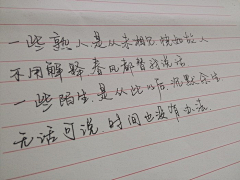 一些熟人是从未相见恍如故人
不用解释春风都替我说话
一些陌生是从此以后沉默余生
无话可说时间也没有办法